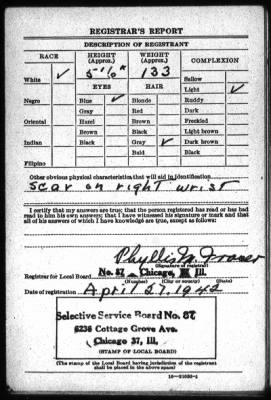 REGISTRAR'S REPORT
DESCRIPTION OF REGISTRANT
RACE HEIGHT (Approx.) WEIGHT (Approx.) COMPLEXION
White ✓ 133 Sallow
EYES HAIR Light ✓
Negro Blue ✓ Blonde Ruddy
Gray Red Dark
Oriental Hazel Brown Freckled
Brown Black Light brown
Indian Black Gray ✓ Dark brown
Bald Black
Filipino
Other obvious physical characteristics that will aid in identification
Scar on right wrist
I certify that my answers are true; that the person registered has read or has had
read to him his own answers; that I have witnessed his signature or mark and that
all of his answers of which I have knowledge are true, except as follows:
Phyllis M. Fraser
(Signature of registrar)
Registrar for Local Board No. 87 Chicago, Ill.
(Number) (City or county) (State)
Date of registration April 27, 1942
Selective Service Board No. 87
6236 Cottage Grove Ave.
Chicago 37, Ill.
(STAMP OF LOCAL BOARD)
(The stamp of the Local Board having jurisdiction of the registrant
shall be placed in the above space)